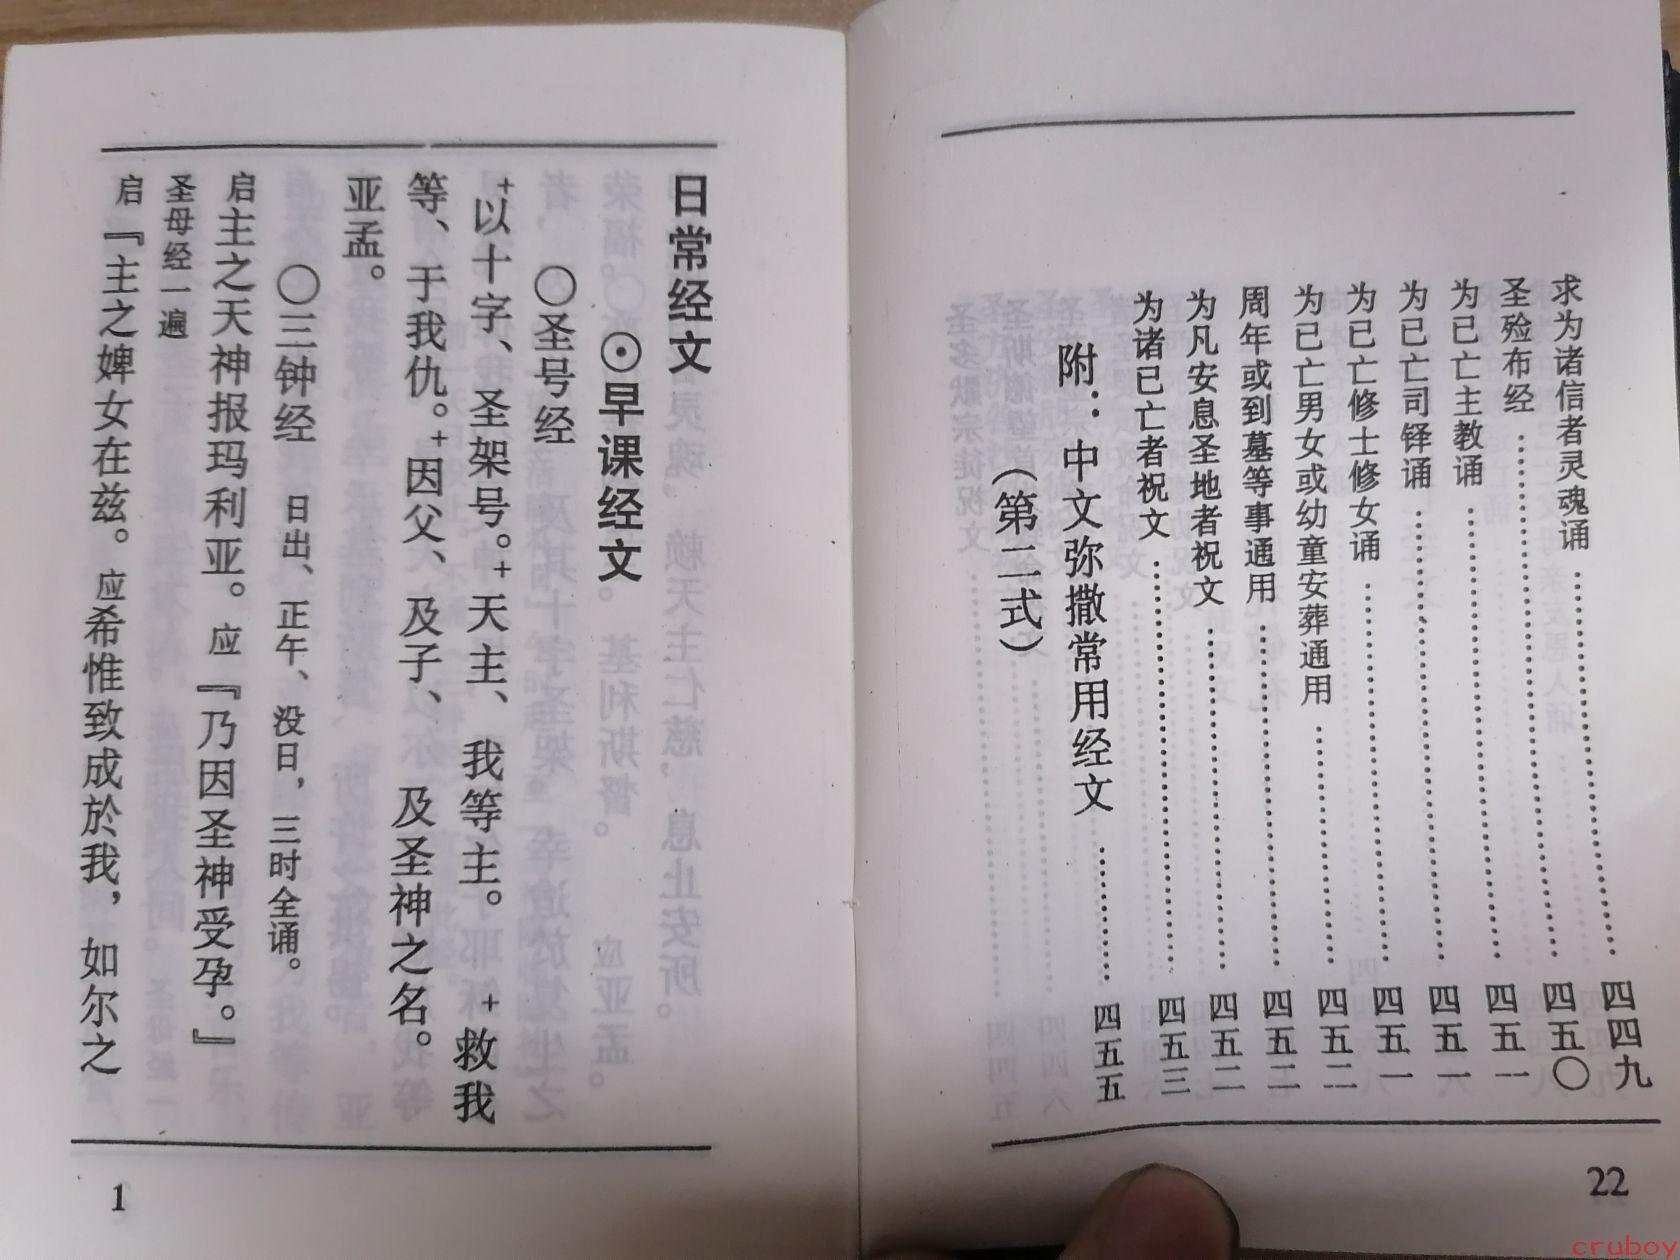 求为诸信者灵魂诵……四四九
圣殓布经……四五〇
为已亡主教诵……四五一
为已亡司铎诵……四五一
为已亡修士修女诵……四五一
为已亡男女或幼童安葬通用……四五二
周年或到墓等事通用……四五二
为凡安息圣地者祝文……四五二
为诸已亡者祝文……四五三
附：中文弥撒常用经文……四五五
（第二式）
22
日常经文
⊙早课经文
〇圣号经
+以十字、圣架号。+天主、我等主。+救我
等、于我仇。+因父、及子、及圣神之名。
亚孟。
〇三钟经 日出、正午、没日，三时全诵。
启主之天神报玛利亚。应『乃因圣神受孕。』
圣母经一遍
启『主之婢女在兹。应希惟致成於我，如尔之
1
cruboy